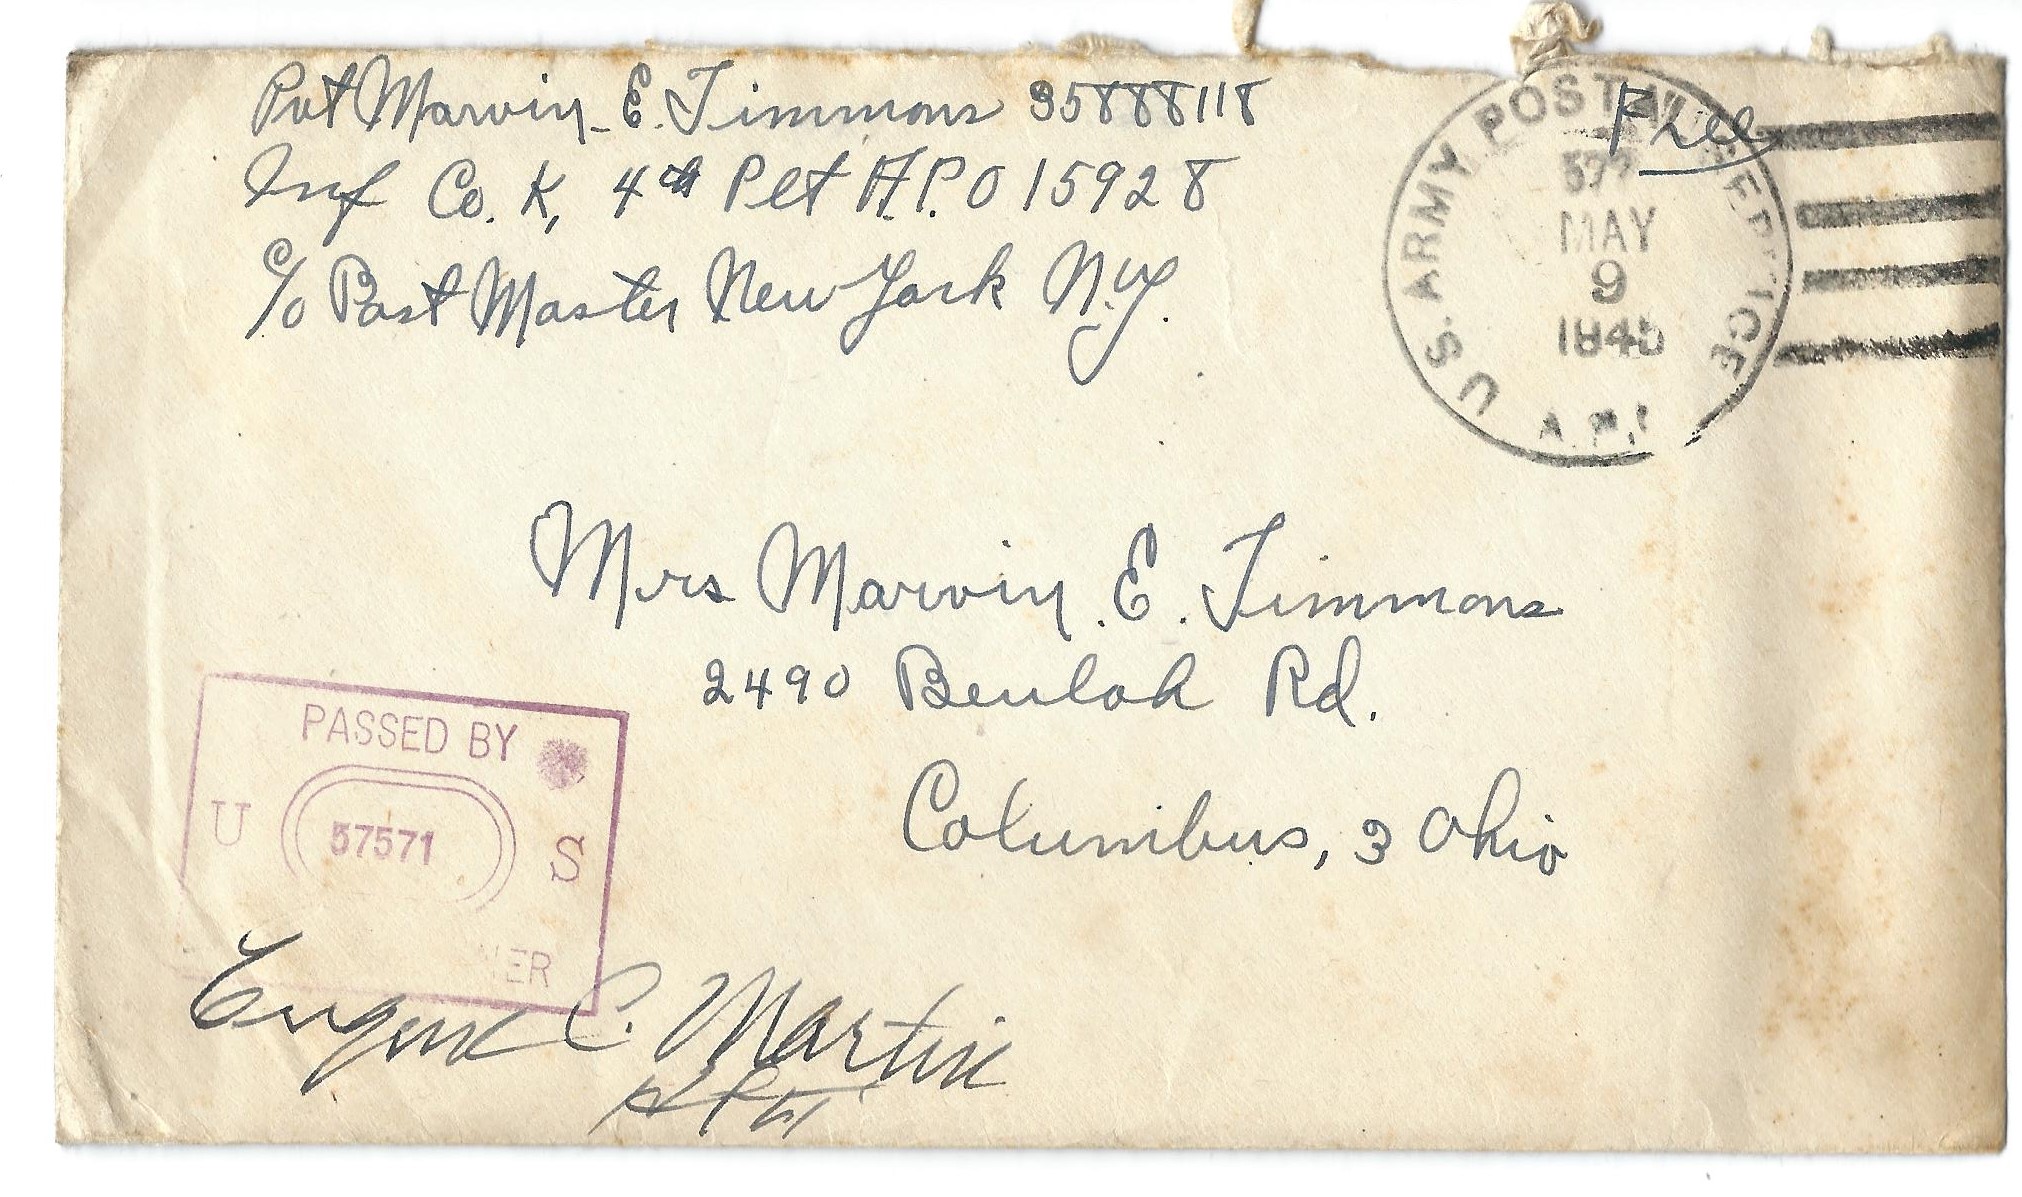 Pvt Marvin E. Timmons 35888118
Inf Co. K, 4th Plt A.P.O 15928
c/o Post Master New York N.Y.
Free
U.S. ARMY POSTAL SERVICE
MAY
9
1945
A.P.
Mrs Marvin E. Timmons
2490 Beulah Rd.
Columbus, 3 Ohio
PASSED BY
U 57571 S
NER
Eugene C. Martin